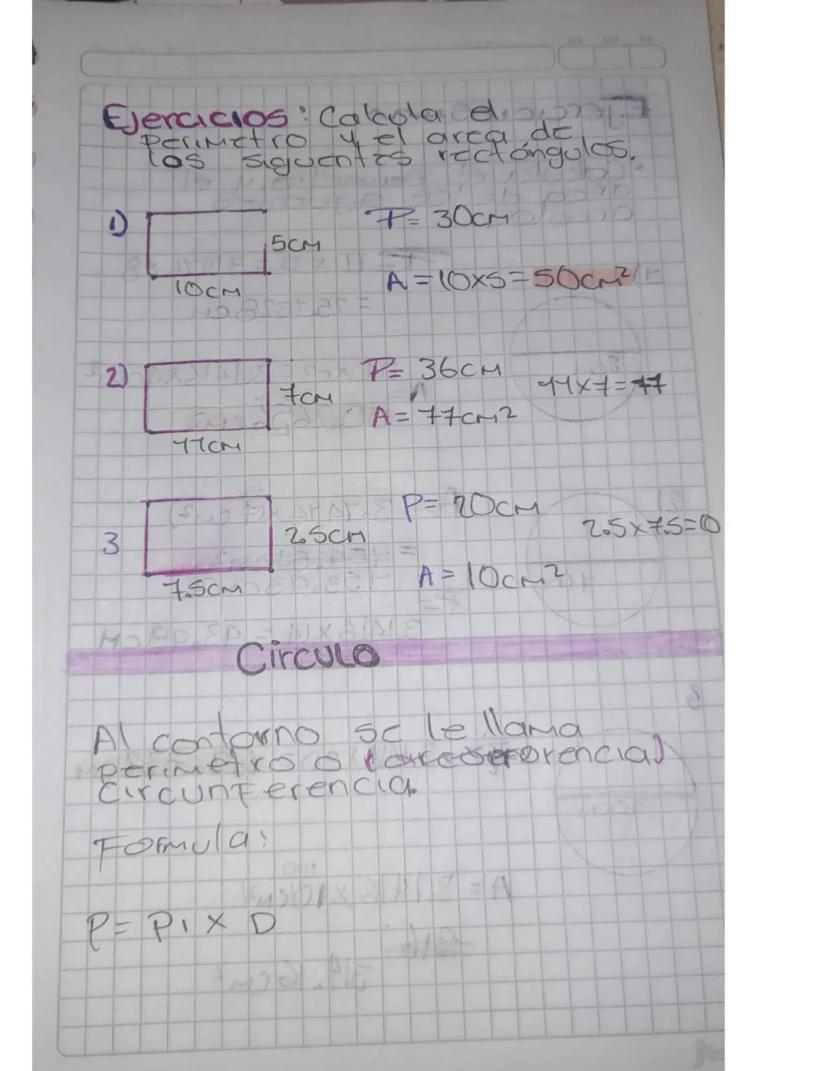 Ejercicios: Calcula el
perimetro y el area de
los siguentes rectángulos.
1)
5cm
10cm
P= 30cm
A=10x5=50cm²
2)
7cm
11cm
P= 36cm
A= 77cm²
11x7=77
3
2.5cm
7.5cm
P= 20cm
2.5x7.5=10
A= 10cm²
Circulo
Al contorno se le llama
perimetro o
circunferencia.
Formula:
P= Pi x D